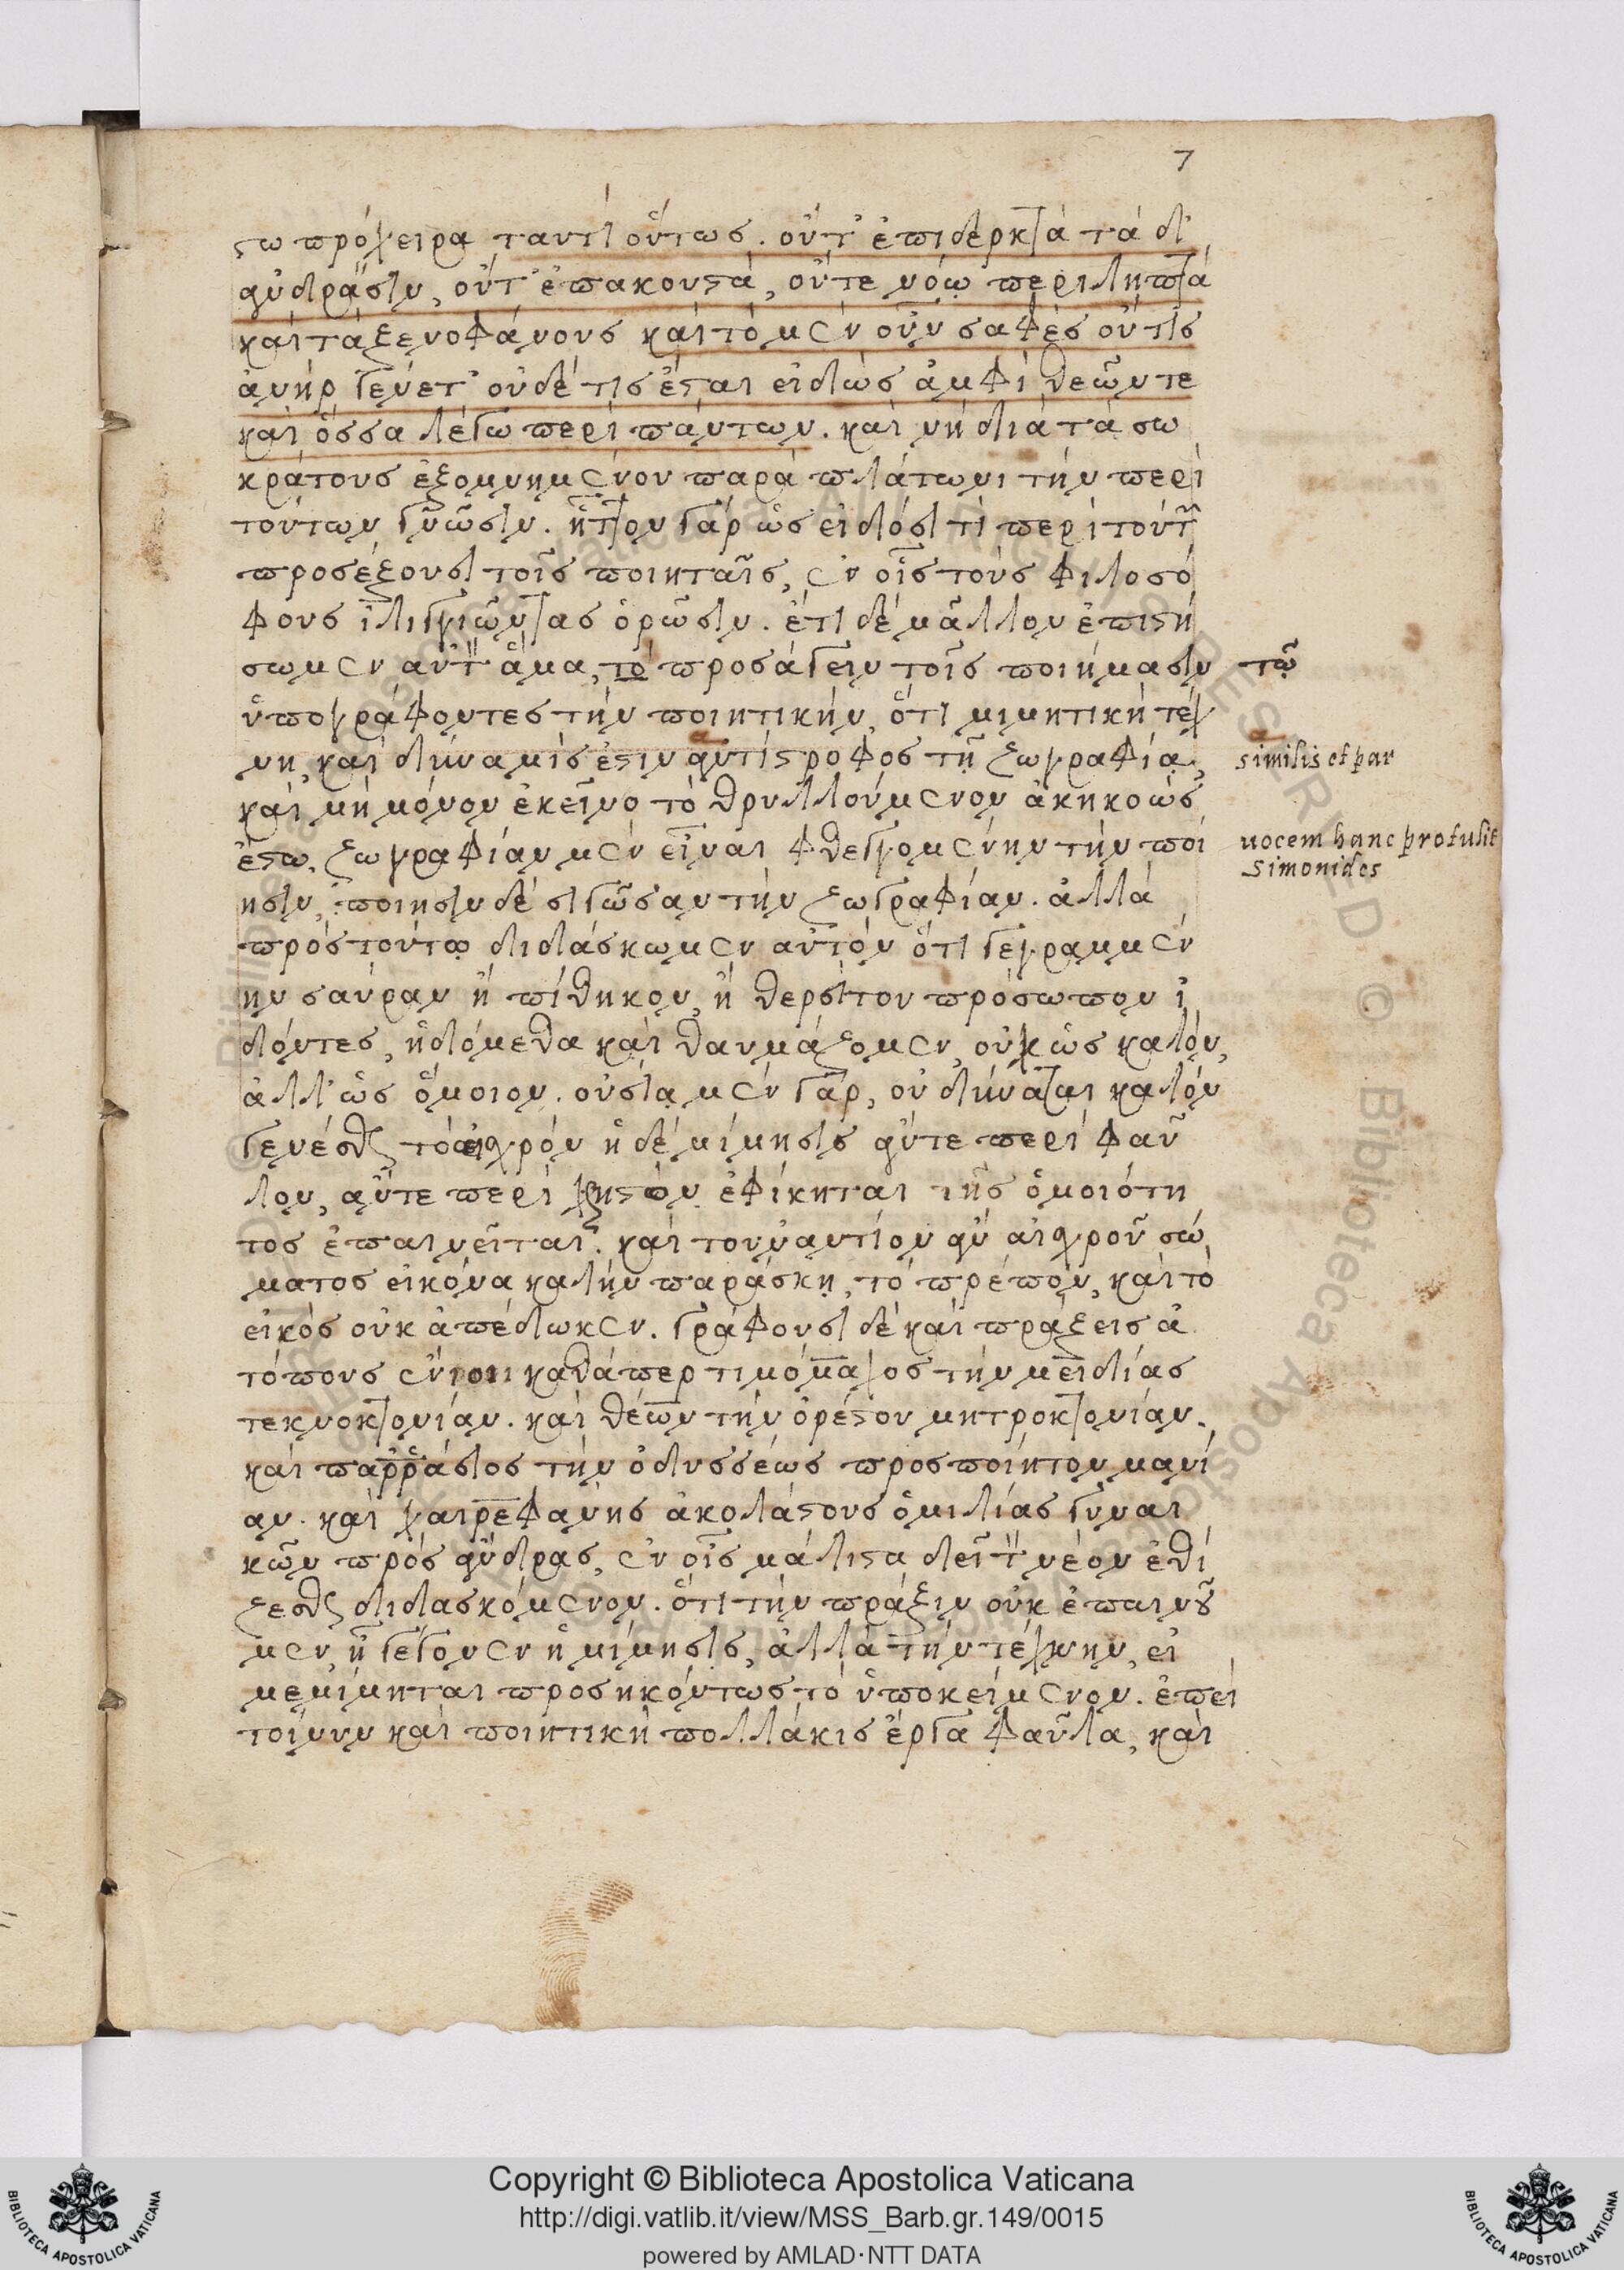 7
στω πρόχειρα ταυτὶ οὕτως. οὔτ' ἐπιδερκτὰ τὰ δ'
ἀνδράσιν, οὔτ' ἐπακουστὰ, οὔτε νόῳ περιληπτὰ
καὶ τὰ ξενοφάνους καὶ τὸ μὲν οὖν σαφὲς οὔτις
ἀνὴρ γένετ' οὐδέ τις ἔσται εἰδὼς ἀμφὶ θεῶν τε
καὶ ὅσσα λέγω περὶ πάντων. καὶ νὴ διὰ τὰ σω
κράτους ἐξομνημένου παρὰ πλάτωνι τὴν περὶ
τούτων γνῶσιν. ἧττον γὰρ ὡς εἰδόσί τι περὶ τούτων
προσέξουσι τοῖς ποιηταῖς, ἐν οἷς τοὺς φιλοσό
φους ἰλιγγιῶντας ὁρῶσιν. ἔτι δὲ μᾶλλον ἐπιστή
σωμεν αὐτὸν ἅμα, τὸ προσάγειν τοῖς ποιήμασιν τῷ
ὑπογράφοντες τὴν ποιητικὴν, ὅτι μιμητικὴ τέχ
νη, καὶ δύναμίς ἐστιν ἀντίστροφος τῇ ζωγραφίᾳ, similis et par
καὶ μὴ μόνον ἐκεῖνο τὸ θρυλλούμενον ἀκηκοὼς
ἔστω, ζωγραφίαν μὲν εἶναι φθεγγομένην τὴν ποί uocem hanc protulit
Simonides
ησιν, ποίησιν δὲ σιγῶσαν τὴν ζωγραφίαν. ἀλλὰ
πρὸς τούτῳ διδάσκωμεν αὐτὸν ὅτι γεγραμμέν
ην σαύραν ἢ πίθηκον, ἢ θερσίτου πρόσωπον ἰ
δόντες, ἡδόμεθα καὶ θαυμάζομεν, οὐχ ὡς καλὸν,
ἀλλ' ὡς ὅμοιον. οὐσίᾳ μὲν γὰρ, οὐ δύναται καλὸν
γενέσθαι τὸ αἰσχρόν ἡ δὲ μίμησις ἄντε περὶ φαῦ
λον, ἄντε περὶ χρηστὸν ἐφίκηται τῆς ὁμοιότη
τος ἐπαινεῖται. καὶ τοὐναντίον ἂν αἰσχροῦ σώ
ματος εἰκόνα καλὴν παράσχῃ, τὸ πρέπον, καὶ τὸ
εἰκὸς οὐκ ἀπέδωκεν. γράφουσι δὲ καὶ πράξεις ἀ
τόπους ἔνιοι καθάπερ τιμόμαχος τὴν μειδίας
τεκνοκτονίαν. καὶ θέων τὴν ὀρέστου μητροκτονίαν.
καὶ παρράσιος τὴν ὀδυσσέως προσποίητον μανί
αν. καὶ χαιρεφάνης ἀκολάστους ὁμιλίας γυναι
κῶν πρὸς ἄνδρας, ἐν οἷς μάλιστα δεῖ τὸν νέον ἐθί
ζεσθαι διδασκόμενον. ὅτι τὴν πρᾶξιν οὐκ ἐπαινοῦ
μεν, ἧ γέγονεν ἡ μίμησις, ἀλλὰ τὴν τέχνην, εἰ
μεμίμηται προσηκόντως τὸ ὑποκείμενον. ἐπεὶ
τοίνυν καὶ ποιητικὴ πολλάκις ἔργα φαῦλα, καὶ
Copyright © Biblioteca Apostolica Vaticana
http://digi.vatlib.it/view/MSS_Barb.gr.149/0015
powered by AMLAD·NTT DATA
BIBLIOTECA APOSTOLICA VATICANA
BIBLIOTECA APOSTOLICA VATICANA